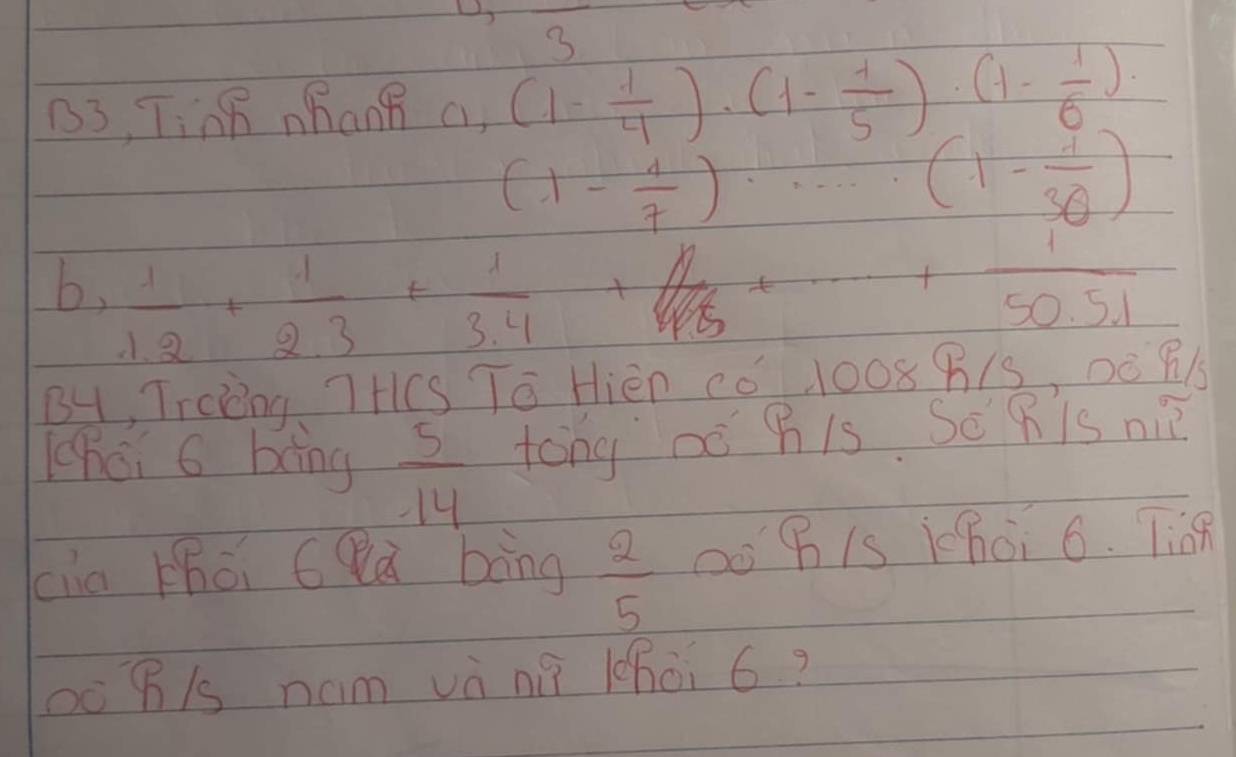 3
B3, Tính nhanh a, (1 - 1/4) . (1 - 1/5) . (1 - 1/6) .
(1 - 1/7) . ..... . (1 - 1/30)
b, 1/1.2 + 1/2.3 + 1/3.4 + + ..... + 1/50.51
B4, Trường THCS Tô Hiến có 1008 h/s, số h/s
khối 6 bằng 5/14 tổng số h/s. Số h/s nữ
của khối 6 bằng 2/5 số h/s khối 6. Tính
số h/s nam và nữ khối 6?